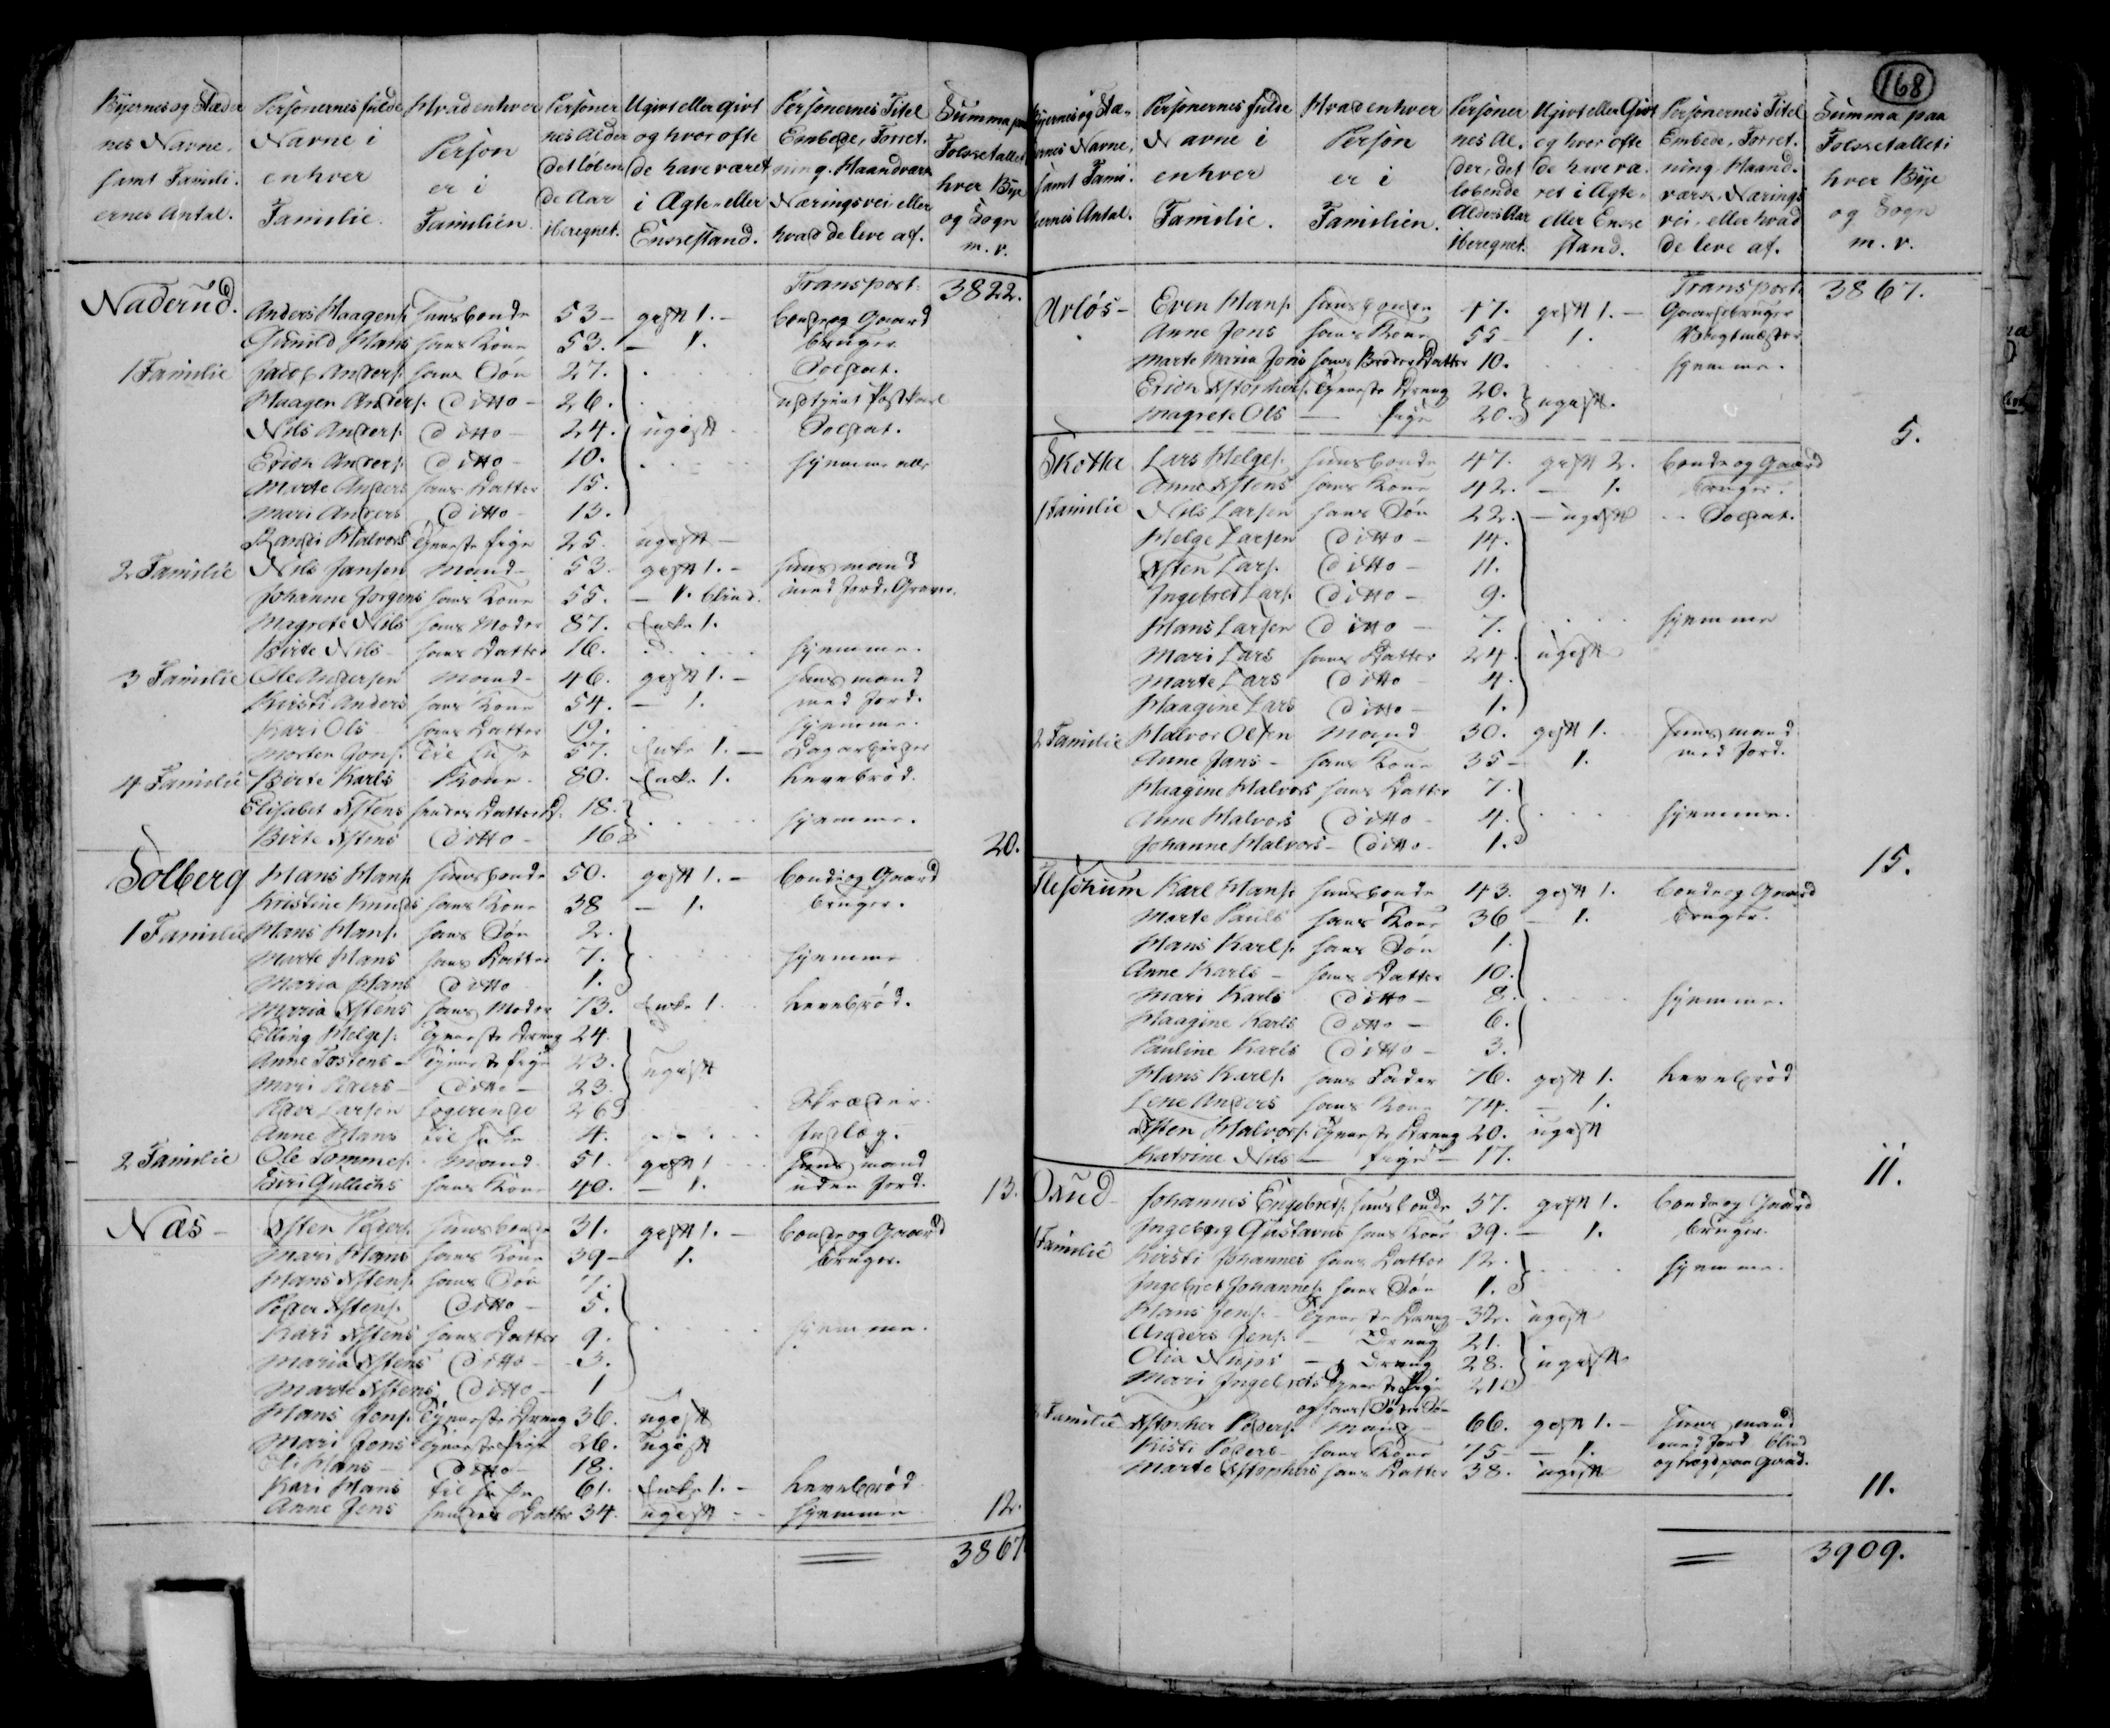 Byernes og Stæder
nes Navne,
samt Famili-
ernes Antal.
Personernes fulde
Navne i
enhver
Familie.
Hvad enhver
Person
er i
Familien.
Personer
nes Alder
det løben
de Aar
iberegnet.
Ugivt eller givt
og hvor ofte
de have været
i Ægte- eller
Enkestand.
Personernes Titel
Embede, Forret-
ning, Haandværk
Næringsvei eller
hvad de leve af.
Summa paa
Folketallet
hver Bye
og Sogn
m. v.
Transport. 3822.
Naderud. Anders Haagens. Huusbonde 53 - gift 1. - bonde og Gaard
Gunild Hans hans Kone 53. - 1. bruger
1 Familie Jacob Anders. hans Søn 27. Soldat.
Haagen Anders. Ditto - 26. udtient
Nils Anders. Ditto - 24. ugift Soldat.
Erich Anders. Ditto - 10. hjemme alle
Marte Anders hans Datter 15.
Mari Anders Ditto - 13.
Randi Halvors Tjeneste Pige 25. ugift -
2 Familie Nils Jansen Mand - 53. gift 1. - Huusmand
Johanne Jorgens hans Kone 55. - 1. blind. med Jord,
Magrete Nils hans Moder 87. Enke 1.
Birte Nils hans Datter 16. hjemme.
3 Familie Ole Andersen Mand - 46. gift 1. - Huusmand
Kirsti Anders hans Kone 54. - 1. med Jord.
Kari Ols hans Datter 19. hjemme.
Morten Jons. til Huse 57. Enke 1. - Dagarbeider
4 Familie Birte Karls Kone - 80. Enke 1. Levebrød.
Elisabet Astens hendes Datter D. 18.
Birte Astens Ditto - 16 hjemme.
20.
Solberg Hans Hans. Huusbonde 50. gift 1. - bonde og Gaard
Kristine Knuds hans Kone 38 - 1. bruger.
1 Familie Hans Hans. hans Søn 2.
Marte Hans hans Datter 7. hjemme
Maria Hans Ditto 1.
Maria Astens hans Moder 73. Enke 1. Levebrød.
Elling Helges. Tjeneste Dreng 24.
Anne Tostens - Tjeneste Pige 23. ugift
Mari Peders - Ditto - 23.
Peder Larsen Logerende 26 Skræder.
Anne Hans til Huse 4. Indlæg.
2 Familie Ole Tommes. Mand 51. gift 1 Huusmand
Siri Gullichs hans Kone 40. - 1. uden Jord. 13.
Næs - Asten Peders. Huusbonde 31. gift 1. - bonde og Gaard
Mari Hans hans Kone 39 - 1. bruger.
Hans Astens. hans Søn 7.
Peder Astens. Ditto - 5.
Kari Astens hans Datter 9. hjemme.
Maria Astens Ditto - 3.
Marte Astens Ditto - 1
Hans Jens. Tjeneste Dreng 36. ugift
Mari Jens Tjeneste Pige 26. ugift
Eli Hans - Ditto - 18.
Kari Hans til Huse 61. Enke 1. - Levebrød
Anne Jens hendes Datter 34. ugift - - hjemme 12.
3867
168
Byernes og Stæ-
ernes Navne,
samt Fami-
liernes Antal.
Personernes fulde
Navne i
enhver
Familie.
Hvad enhver
Person
er i
Familien.
Personer
nes Al-
der, det
løbende
Alders Aar
iberegnet.
Ugivt eller Givt
og hvor ofte
de have væ-
ret i Ægte-
eller Enke
stand.
Personernes Titel
Embede, Forret-
ning, Haand-
værk, Nærings
vei, eller hvad
de leve af.
Summa paa
Folketallet i
hver Bye
og Sogn
m. v.
Transport. 3867.
Arløs - Even Hans. Huusbonde 47. gift 1. - Gaardbruger
Anne Jens hans Kone 55 - 1. Vagtmester
Marte Maria Jons hans Broder Datter 10. hjemme.
Erich Astorkers. Tjeneste Dreng 20. ugift.
Magrete Ols - Pige 20.
5.
Skothe Lars Helges. Huusbonde 47. gift 2. bonde og Gaard
Anne Astens hans Kone 42. - 1. bruger.
1 Familie Nils Larsen hans Søn 22. - ugift - - Soldat.
Helge Larsen Ditto - 14.
Asten Lars. Ditto - 11.
Ingebret Lars. Ditto - 9.
Hans Larsen Ditto - 7. hjemme
Mari Lars hans Datter 24. ugift
Marte Lars Ditto - 4.
Haagine Lars Ditto - 1.
2 Familie Halvor Olsen Mand 30. gift 1. Huusmand
Anne Jans - hans Kone 35 - 1. med Jord.
Haagine Halvors hans Datter 7.
Anne Halvors Ditto - 4. hjemme.
Johanne Halvors - Ditto - 1.
15.
Fleschum Karl Hans. Huusbonde 43. gift 1. bonde og Gaard
Marte Pauls hans Kone 36 - 1. bruger.
Hans Karls. hans Søn 1.
Anne Karls - hans Datter 10.
Mari Karls Ditto - 8. hjemme.
Haagine Karls Ditto - 6.
Pauline Karls Ditto - 3.
Hans Karls. hans Fader 76. gift 1. Levebrød
Lene Anders hans Kone 74. - 1.
Asten Halvors. Tjeneste Dreng 20. ugift
Katrine Nils - Pige - 17.
11.
Oxud Johannes Engebrets. Huusbonde 37. gift 1. bonde og Gaard
Ingeborg Gustavus hans Kone 39. - 1. bruger.
1 Familie Kirsti Johannes hans Datter 12. hjemme.
Ingebret Johannes. hans Søn 1.
Hans Jens. - Tjeneste Dreng 32. ugift
Anders Jens. - Dreng 21.
Olia - Dreng 28. ugift
Mari Ingebrets Tjeneste Pige 21
og hans Søster Søn
Familie Astorker Peders. Mand - 66. gift 1. - Huusmand
Kisti Peders - hans Kone 75 - - 1. med Jord blind
Marte Astorkers hans Datter 38. ugift og lægd paa Gaard.
11.
3909.